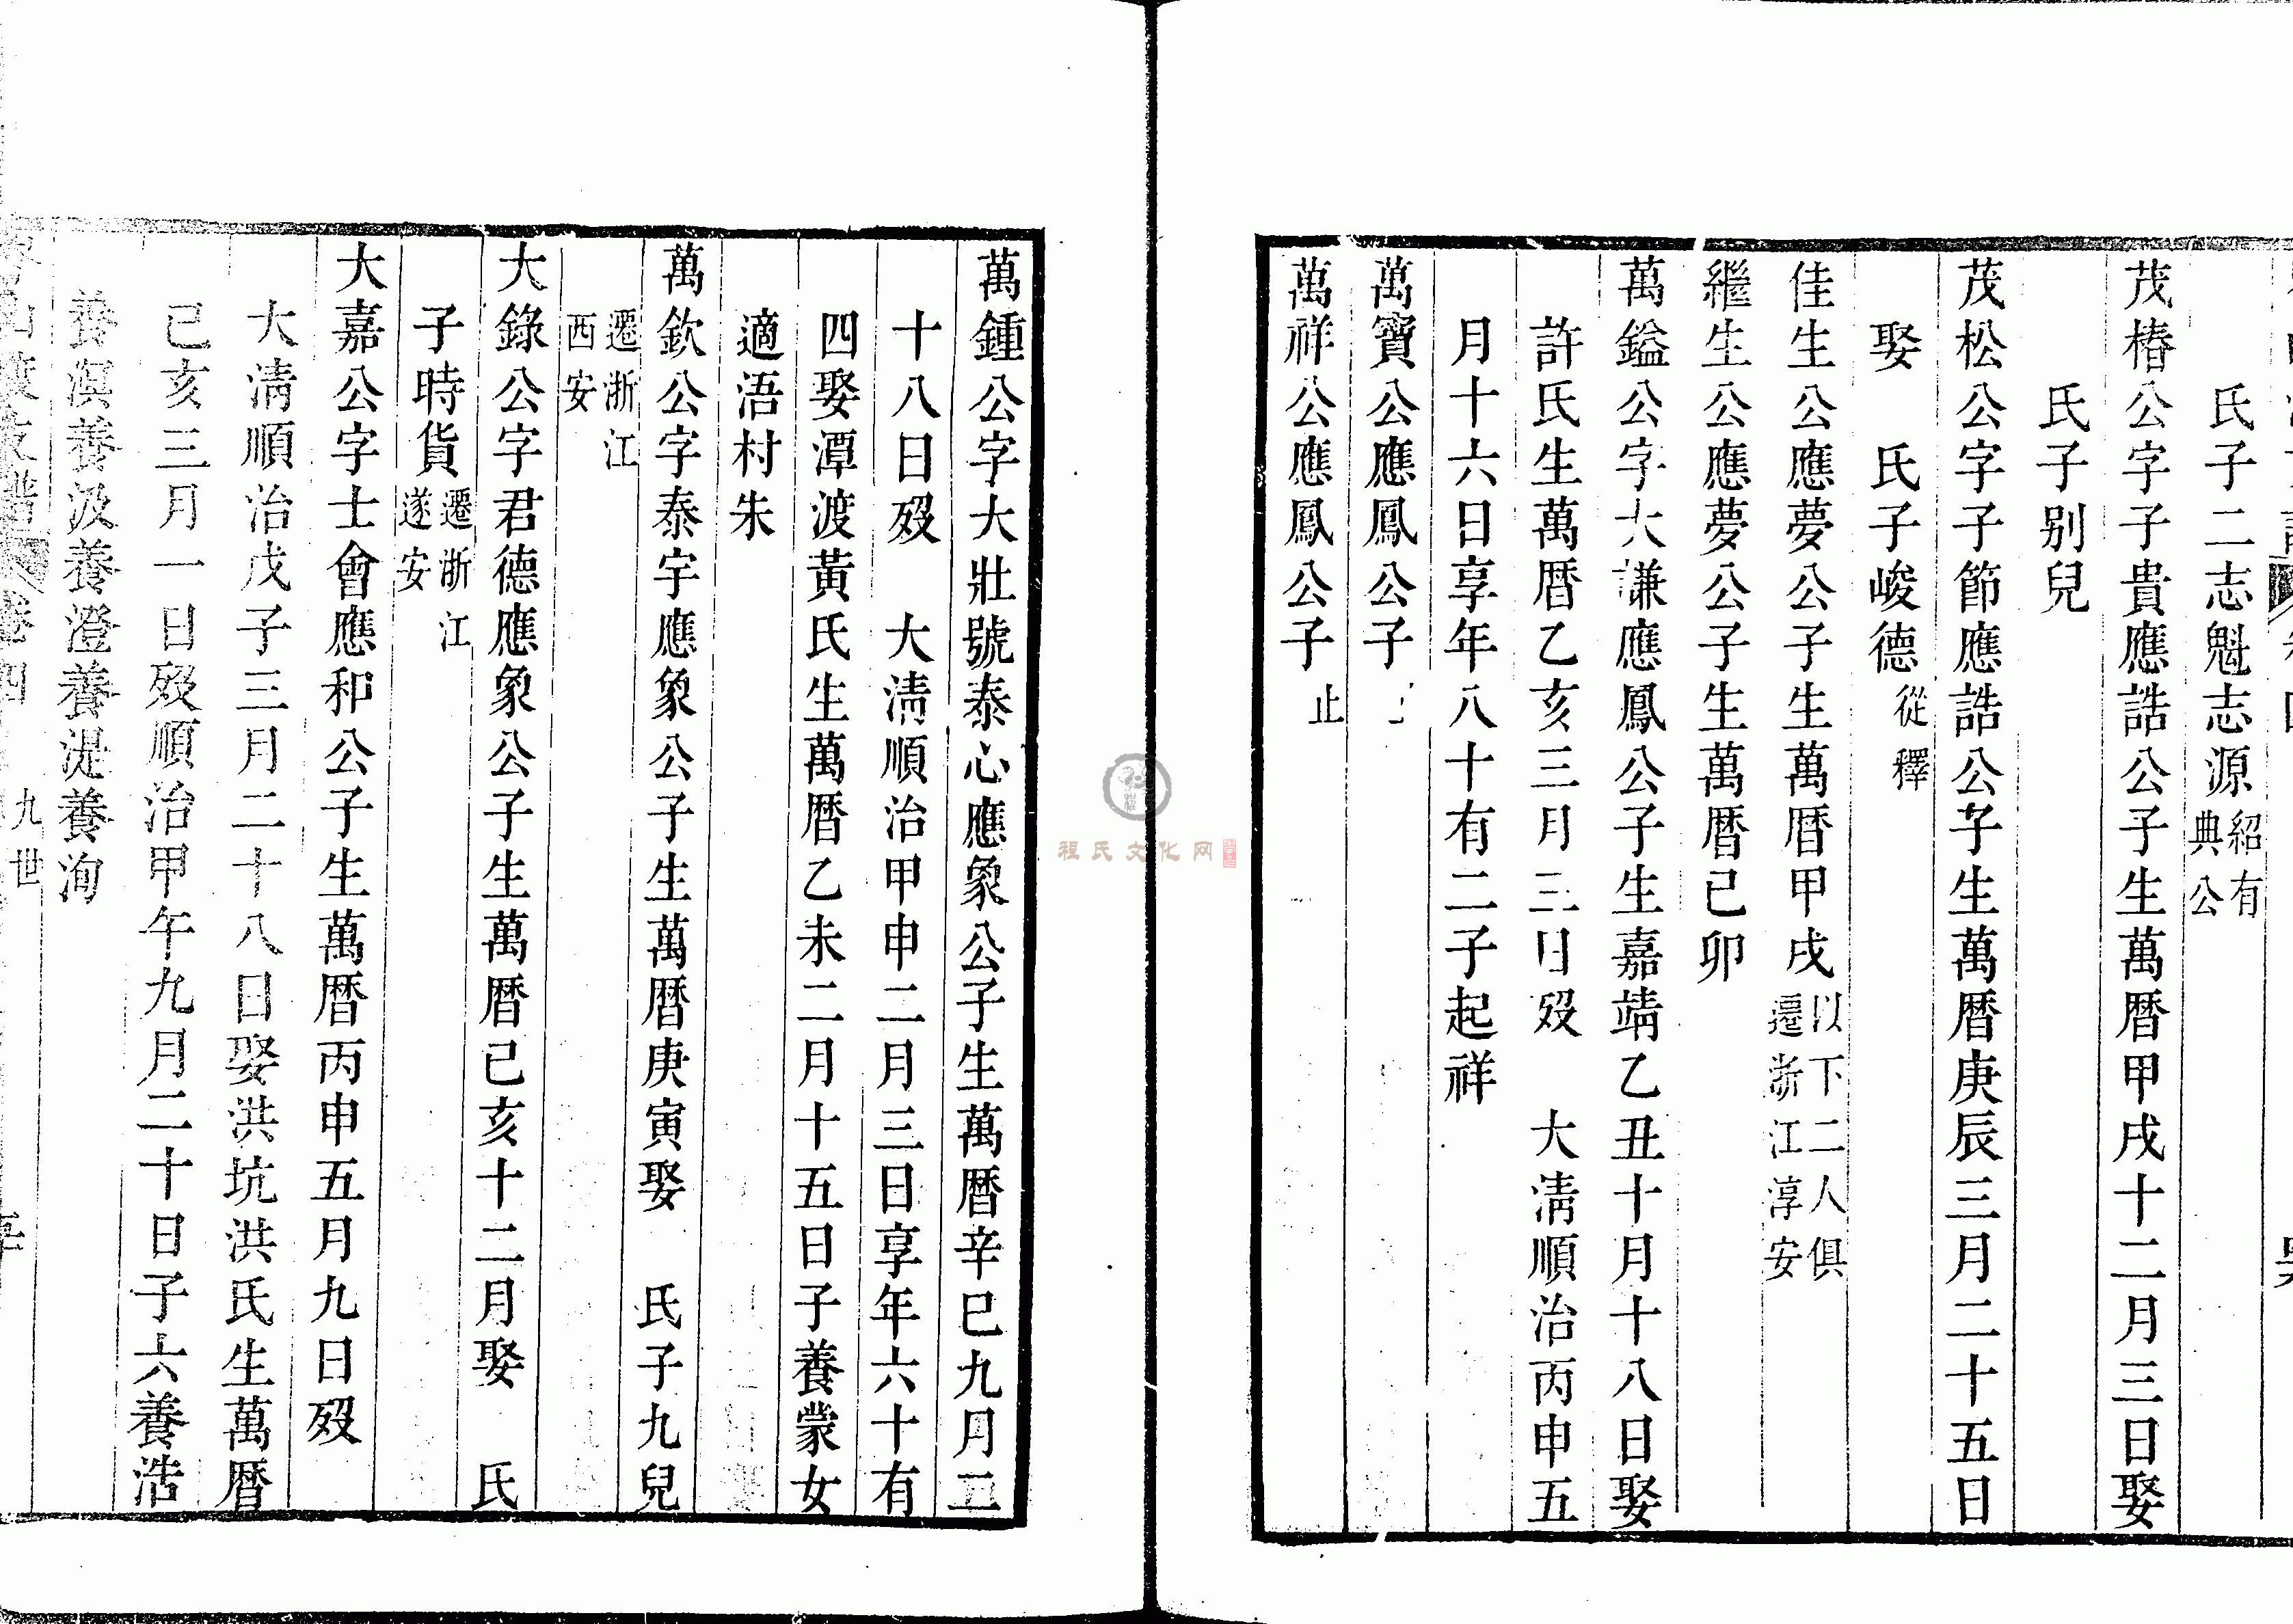 氏子二志魁志源紹有典公
茂椿公字子貴應誥公子生萬曆甲戌十二月三日娶
氏子别兒
茂松公字子節應誥公子生萬曆庚辰三月二十五日
娶　氏子峻德從釋
佳生公應夢公子生萬曆甲戌以下二人俱遷浙江淳安
繼生公應夢公子生萬曆己卯
萬鎰公字大謙應鳳公子生嘉靖乙丑十月十八日娶
許氏生萬曆乙亥三月三日歿　大清順治丙申五
月十六日享年八十有二子起祥
萬寶公應鳳公子
萬祥公應鳳公子止
萬鍾公字大壯號泰心應象公子生萬曆辛巳九月二
十八日歿　大清順治甲申二月三日享年六十有
四娶潭渡黃氏生萬曆乙未二月十五日子養蒙女
適浯村朱
萬欽公字泰宇應象公子生萬曆庚寅娶　氏子九兒
遷浙江西安
大錄公字君德應象公子生萬曆己亥十二月娶　氏
子時貨遷浙江遂安
大嘉公字士會應和公子生萬曆丙申五月九日歿
大清順治戊子三月二十八日娶洪坑洪氏生萬曆
己亥三月一日歿順治甲午九月二十日子六養浩
養溟養汲養澄養湜養洵
卷四　九世
程氏文化网